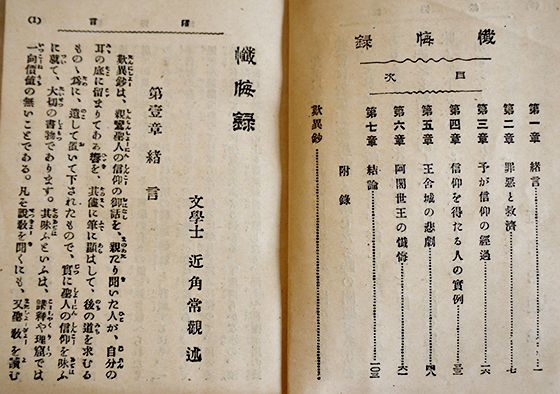 懺悔録
目次
第一章 緒言……一
第二章 罪惡と救濟……七
第三章 予が信仰の經過……一六
第四章 信仰を得たる人の實例……三三
第五章 王舍城の悲劇……四八
第六章 阿闍世王の懺悔……六一
第七章 結論……一〇三
附錄
歎異鈔……
緒言 (1)
懺悔錄
文學士 近角常觀述
第壹章 緒言
歎異鈔は、親鸞聖人の信仰の御話を、親たり聞いた人が、自分の
耳の底に留まりてある響を、其儘に筆に顯はして、後の道を求むる
ものゝ爲に、遺して置いて下されたもので、實に聖人の信仰を味ふ
に就て、大切の書物であります。其味ふといふは、講釋や理窟では
一向價値の無いことである。凡そ說敎を聞くにも、又聖敎を讀む